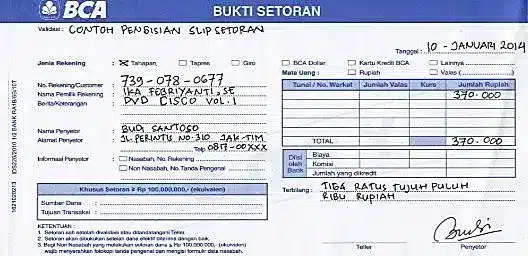 BCA
BUKTI SETORAN
Validasi : CONTOH PENGISIAN SLIP SETORAN
Tanggal : 10 - JANUARI 2014
Jenis Rekening : Tahapan Tapres Giro
BCA Dollar Kartu Kredit BCA Lainnya
Mata Uang : Rupiah Valas (
No. Rekening/Customer : 739-078-0677
Nama Pemilik Rekening : IKA FEBRIYANTI, SE
Berita/Keterangan : DVD CISCO VOL. 1
Tunai / No. Warkat Jumlah Valas Kurs Jumlah Rupiah
370.000
Nama Penyetor : BUDI SANTOSO
Alamat Penyetor : JL. PERINTIS NO. 310 JAK-TIM
Telp. 0817-00XXX
TOTAL 370.000
Informasi Penyetor : Nasabah, No. Rekening
Non Nasabah, No. Tanda Pengenal
Diisi oleh Bank
Biaya
Komisi
Jumlah yang dikredit
Khusus Setoran ≥ Rp 100.000.000,- (ekuivalen)
Sumber Dana :
Tujuan Transaksi :
Terbilang : TIGA RATUS TUJUH PULUH
RIBU RUPIAH
KETENTUAN :
1. Setoran sah setelah divalidasi atau ditandatangani Teller.
2. Setoran akan dibukukan setelah dana efektif diterima dengan baik.
3. Bagi Non Nasabah yang melakukan setoran dana ≥ Rp 100.000.000,- (ekuivalen)
wajib menyerahkan fotokopi tanda pengenal dan mengisi formulir data nasabah.
Teller
Penyetor